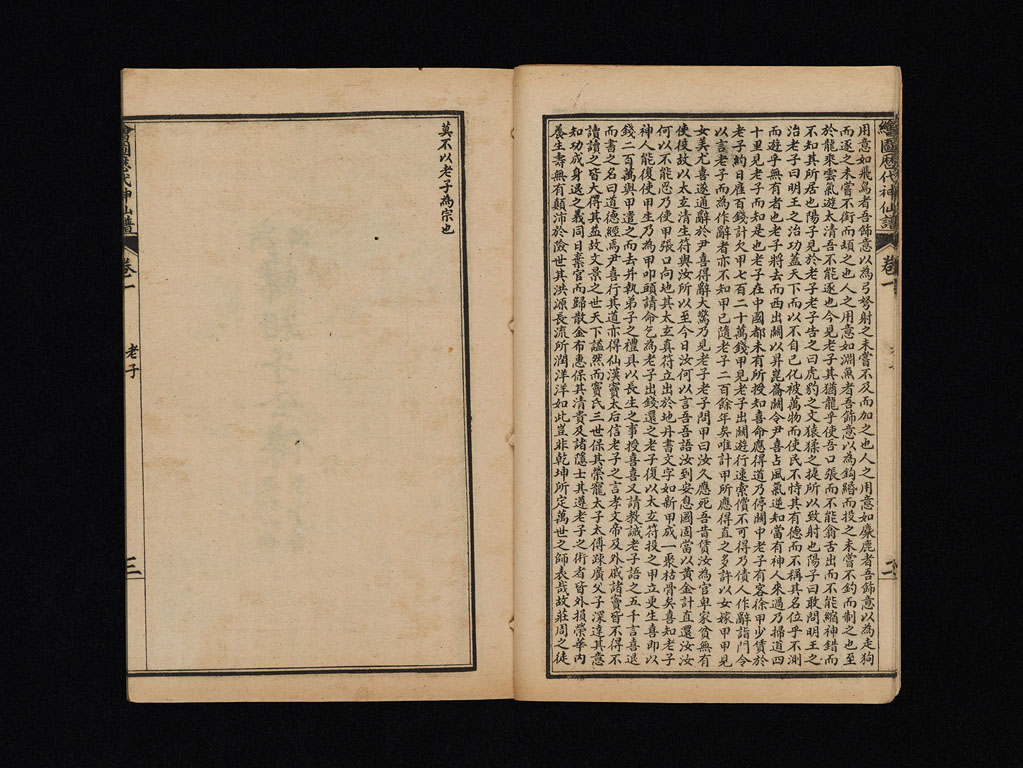 繪圖歷代神仙譜 卷一
用意如飛鳥者吾飾意以為弓弩射之未嘗不及而加之也人之用意如麋鹿者吾飾意以為走狗
而逐之未嘗不銜而頓之也人之用意如淵魚者吾飾意以為鈎緡而投之未嘗不釣而制之也至
於龍來雲氣遊太清吾不能逐也今見老子其猶龍乎使吾口張而不能翕舌出而不能縮神錯而
不知其所居也陽子見於老子老子告之曰虎豹之文猿猱之捷所以致射也陽子曰敢問明王之
治老子曰明王之治功蓋天下而以不自己化被萬物而使民不恃其有德而不稱其名位乎不測
而遊乎無有者也老子將去而西出關以昇崑崙關令尹喜占風氣逆知當有神人來過乃掃道四
十里見老子而知是也老子在中國都未有所授知喜命應得道乃停關中老子有客徐甲少賃於
老子約日雇百錢計欠甲七百二十萬錢甲見老子出關遊行速索償不可得乃債人作辭詣門令
以言老子而為作辭者亦不知甲已隨老子二百餘年矣唯計甲所應得直之多許以女嫁甲甲見
女美尤喜遂通辭於尹喜得辭大驚乃見老子老子問甲曰汝久應死吾昔賃汝為官卑家貧無有
使役故以太玄清生符與汝所以至今日汝何以言吾吾語汝到安息國固當以黃金計直還汝汝
何以不能忍乃使甲張口向地其太玄真符立出於地丹書文字如新甲成一聚枯骨矣喜知老子
神人能復使甲生乃為甲叩頭請命乞為老子出錢還之老子復以太玄符投之甲立更生喜即以
錢二百萬與甲遣之而去并執弟子之禮具以長生之事授喜喜又請教誡老子語之五千言喜退
而書之名曰道德經焉尹喜行其道亦得仙漢竇太后信老子之言孝文帝及外戚諸竇皆不得不
讀讀之皆大得其益故文景之世天下謐然而竇氏三世保其榮寵太子太傅疎廣父子深達其意
知功成身退之義同日棄官而歸散金布惠保其清貴及諸隱士其遵老子之術者皆外損榮華內
養生壽無有顛沛於險世其洪源長流所潤洋洋如此豈非乾坤所定萬世之師表哉故莊周之徒
莫不以老子為宗也
繪圖歷代神仙譜 卷一 老子 三